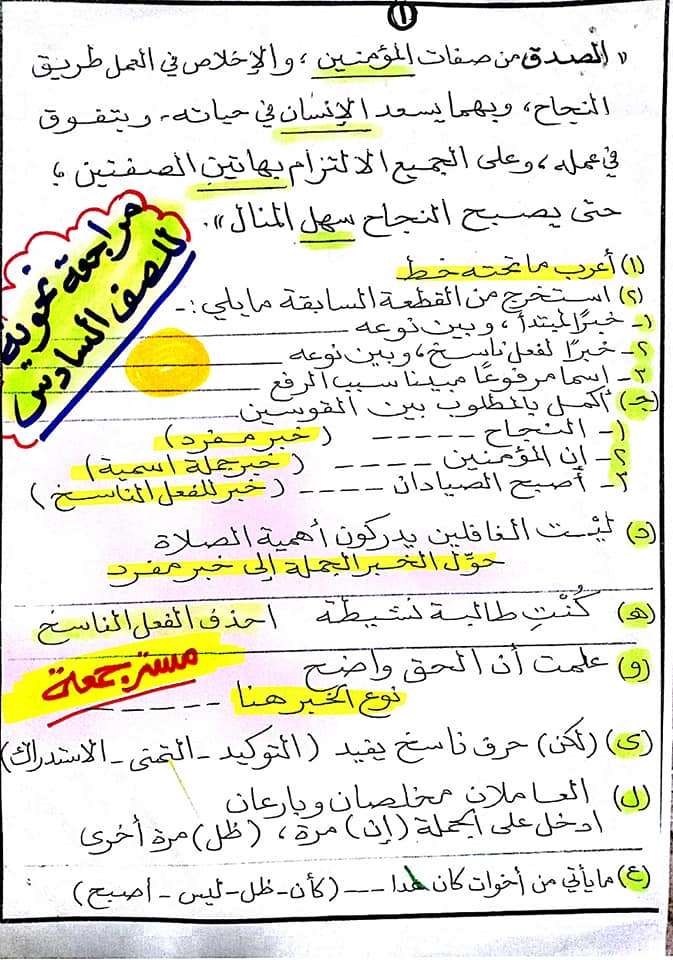 (١)
« الصدق من صفات المؤمنين ، والإخلاص في العمل طريق
النجاح ، وبهما يسعد الإنسان في حياته ، ويتفوق
في عمله ، وعلى الجميع الالتزام بهاتين الصفتين ؛
حتى يصبح النجاح سهل المنال ».
مراجعة نحوية
للصف السادس
(١) أعرب ما تحته خط
(٢) استخرج من القطعة السابقة ما يلي :-
١- خبرًا لمبتدأ ، وبين نوعه
٢- خبرًا لفعل ناسخ ، وبين نوعه
٣- إسما مرفوعًا مبينا سبب الرفع
(جـ) أكمل بالمطلوب بين القوسين
١- النجاح ----- (خبر مفرد)
٢- إن المؤمنين ---- (خبر جملة اسمية)
٣- أصبح الصيادان ---- (خبر للفعل الناسخ)
(د) ليست الغافلين يدركون أهمية الصلاة
حوّل الخبر الجملة إلى خبر مفرد
(هـ) كُنْتِ طالبة نشيطة احذف الفعل الناسخ
(و) علمت أن الحق واضح
نوع الخبر هنا -----
مستر جمعة
(ى) (لكن) حرف ناسخ يفيد (التوكيد - التمنى - الاستدراك)
(ل) العاملان مخلصان وبارعان
ادخل على الجملة (إن) مرة ، (ظل) مرة أخرى
(ع) ما يأتي من أخوات كان عدا --- (كأن - ظل - ليس - أصبح)